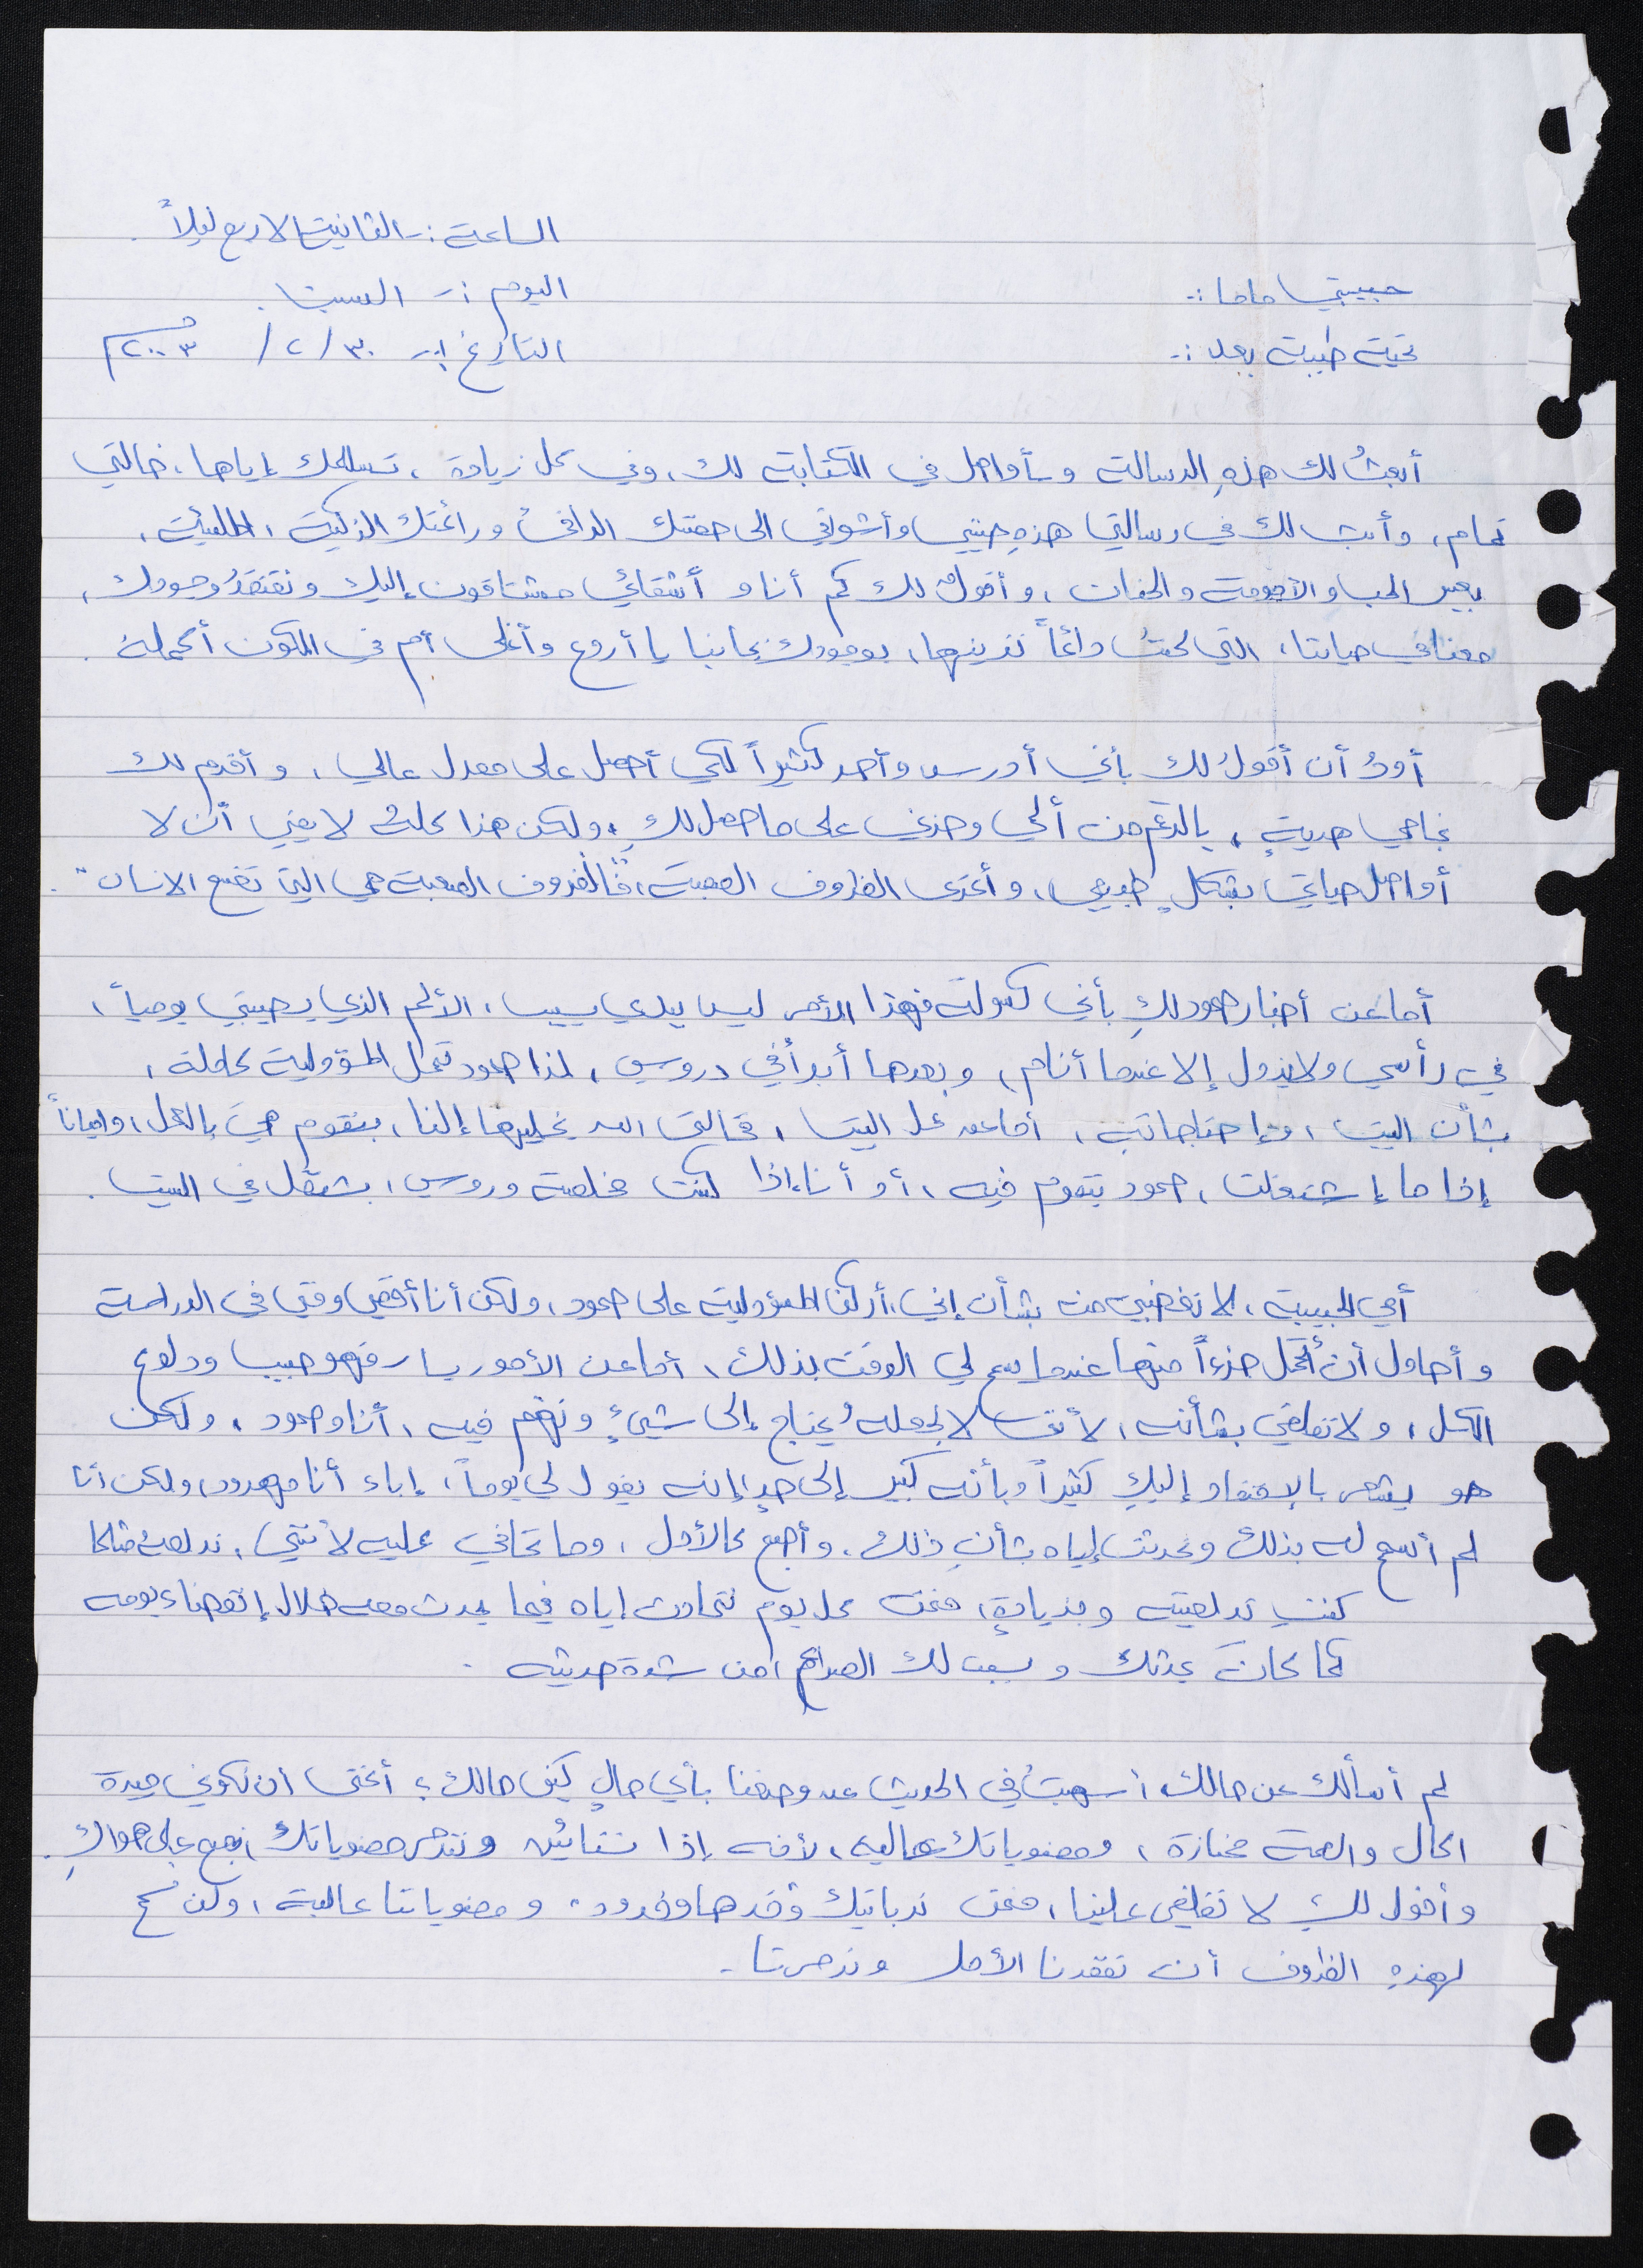 الساعة :- الثانية إلا ربع ليلاً.
حبيبتي ماما :-
اليوم :- السبت.
تحية طيبة بعد :-
التاريخ :- ٣٠/٢/٢٠٠٣م
أبعثُ لك هذهِ الرسالة وسأواصل في الكتابة لك، وفي كل زيارة، تسلمك إياها، خالتي
تمام، وأبث لك في رسالتي هذهِ حنيني وأشواقي الى حضنك الدافئ ورائحتك الذكية، المليئة،
بعبير الحب والأمومة والحنان، وأقول لك كم أنا و أشقائي مشتاقون إليك ونفتقدُ وجودك،
معنا في حياتنا، التي كنتُ دائماً تزينيها، بوجودك بجانبنا يا أروع وأغلى أم في الكون أكمله.
أودُ أن أقولُ لك بأني أدرس وأجد كثيراً لكي أحصل على معدل عالي، و أقدم لك
نجاحي هديةٍ، بالرغم من ألمي وحزني على ما حصل لكِ، ولكن هذا كلهُ لا يعني أن لا
أواصل حياتي بشكلٍ طبيعي، و أتحدى الظروف الصعبة، "فالظروف الصعبة هي التي تصنع الانسان".
أما عن أخبار صمود لكِ بأني كسولة فهذا الأمر ليس بيدي بسبب، الألم الذي يصيبني يومياً،
في رأسي ولا يزول إلا عندما أنام، وبعدها أبدأ في دروسي، لذا صمود تحمل المسؤولية كاملة،
بشأن البيت، و إحتاجاته، أما عن عمل البيت، فخالتي الله يخليها إلنا، بتقوم هي بالعمل، واحياناً
إذا ما إشتغلت، صمود بتقوم فيه، أو أنا إذا كنت مخلصة دروسي، بشتغل في البيت.
أمي الحبيبة، لا تغضبي مني بشأن إني، أركن المسؤولية على صمود، ولكن أنا أقضي وقتي في الدراسة
و أحاول أن أتحمل جزءاً منها عندما يسمح لي الوقت بذلك، أما عن الأمور يسار فهو حبيب ودلوع
الكل، ولا تقلقي بشأنه، لأننا لا نجعلهُ يحتاج إلى شيءٍ ونهتم فيه، أنا وصمود، ولكن
هو يشعر بالإفتقاد إليكِ كثيراً وبأنه كبير إلى حدٍ إنه يقول لي يوماً، أنا مهدود، ولكن انا
لم أسمح له بذلك وتحدثت إياه بشأنِ ذلك، وأصبح كالأول، وما تخافي عليه لأنني، ندلعهُ مثلما
كنتِ تدلعينه وبزيادةٍ، فنحن كل يوم نتحادث إياه فيما يحدث معه خلال إنقضاء يومه
كما كان يحدثك ويسبب لك الصداع، من شدة حديثه.
لم أسألك عن حالك، أسهبتُ في الحديث عن وضعنا بأي حالٍ كيف حالك؟ أتمنى ان تكوني جيدة
الحال والصحة ممتازة، ومعنوياتك عاليه، لأنه إذا وتتدمر معنوياتك على هواكِ.
وأقول لكِ لا تقلقي علينا، فنحن ترباتيك وقدها وقدود، ومعنوياتنا عالية، ولن نسمح
لهذهِ الظروف أن تفقدنا الأمل وتدمرنا.